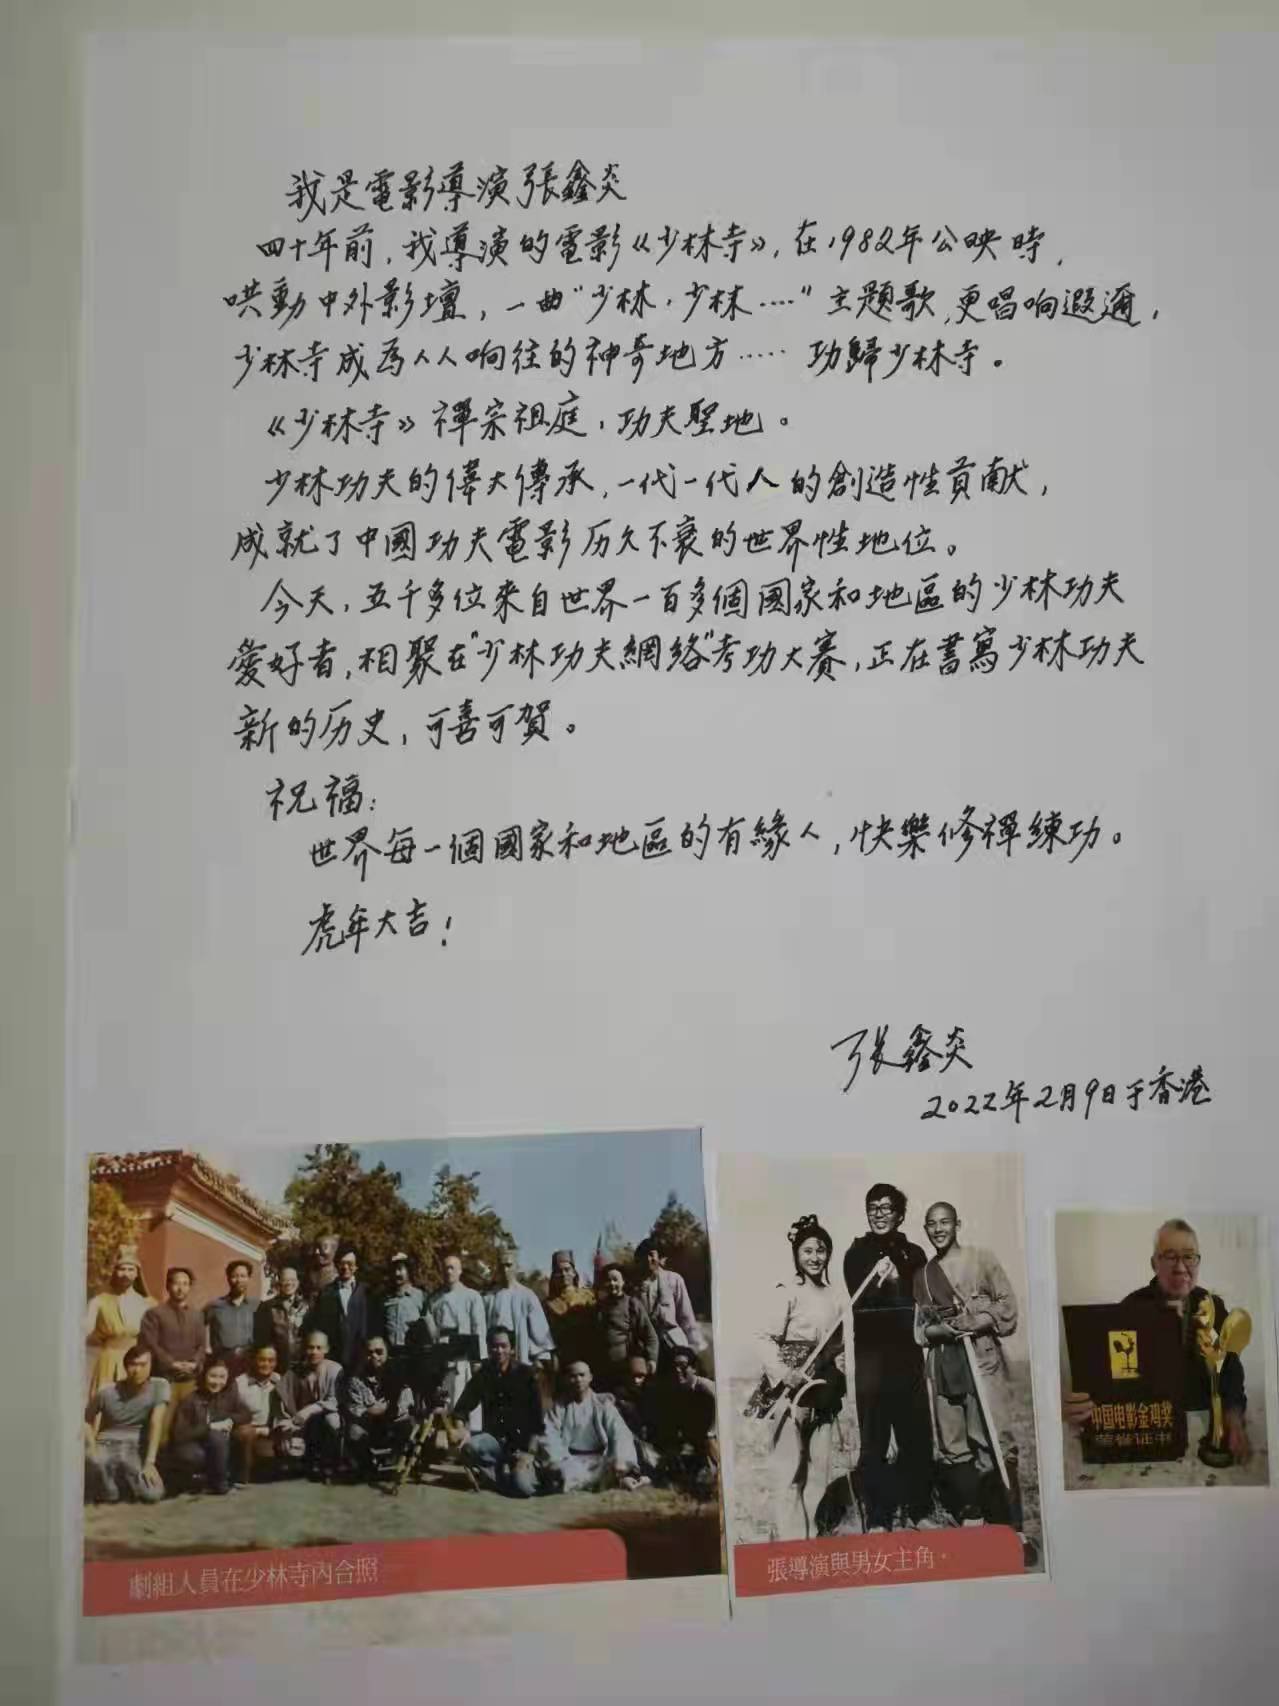 我是電影導演張鑫炎
四十年前，我導演的電影《少林寺》，在1982年公映時，
哄動中外影壇，一曲“少林·少林……”主題歌，更唱响遐邇，
少林寺成為人人响往的神奇地方…… 功歸少林寺。
《少林寺》禪宗祖庭，功夫聖地。
少林功夫的偉大傳承，一代一代人的創造性貢献，
成就了中國功夫電影历久不衰的世界性地位。
今天，五千多位來自世界一百多個國家和地區的少林功夫
愛好者，相聚在“少林功夫網絡”考功大賽，正在書寫少林功夫
新的历史，可喜可賀。
祝福：
世界每一個國家和地區的有緣人，快樂修禪練功。
虎年大吉！
張鑫炎
2022年2月9日于香港
劇組人員在少林寺內合照
張導演與男女主角·
中国电影金鸡奖
荣誉证书